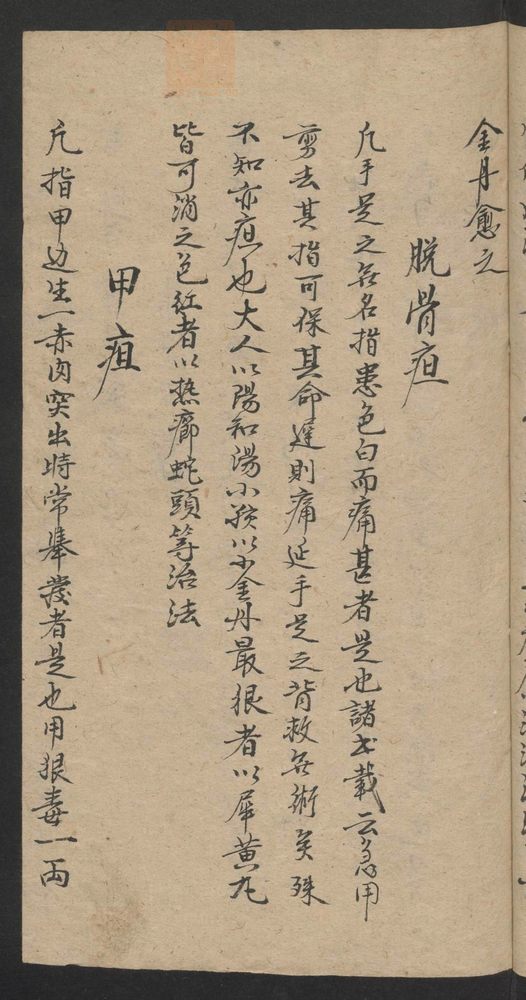 金丹愈之
脱骨疽
凢手足之无名指患色白而痛甚者是也諸书載云急用
剪去其指可保其命遲則痛延手足之背救无術矣殊
不知亦疽也大人以陽和湯小孩以小金丹最狠者以犀黄丸
皆可消之色红者以熱癤蛇頭等治法
甲疽
凢指甲边生一赤肉突出時常舉發者是也用狠毒一両